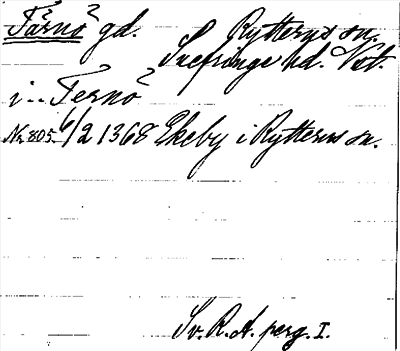 Tärnö gd. Rytterns sn.
Snefringe hd. Vstm.
i.. Ternö
Nr. 805. 6/2 1368 Ekeby i Rytterns sn.
Sv. R. A. perg. I.